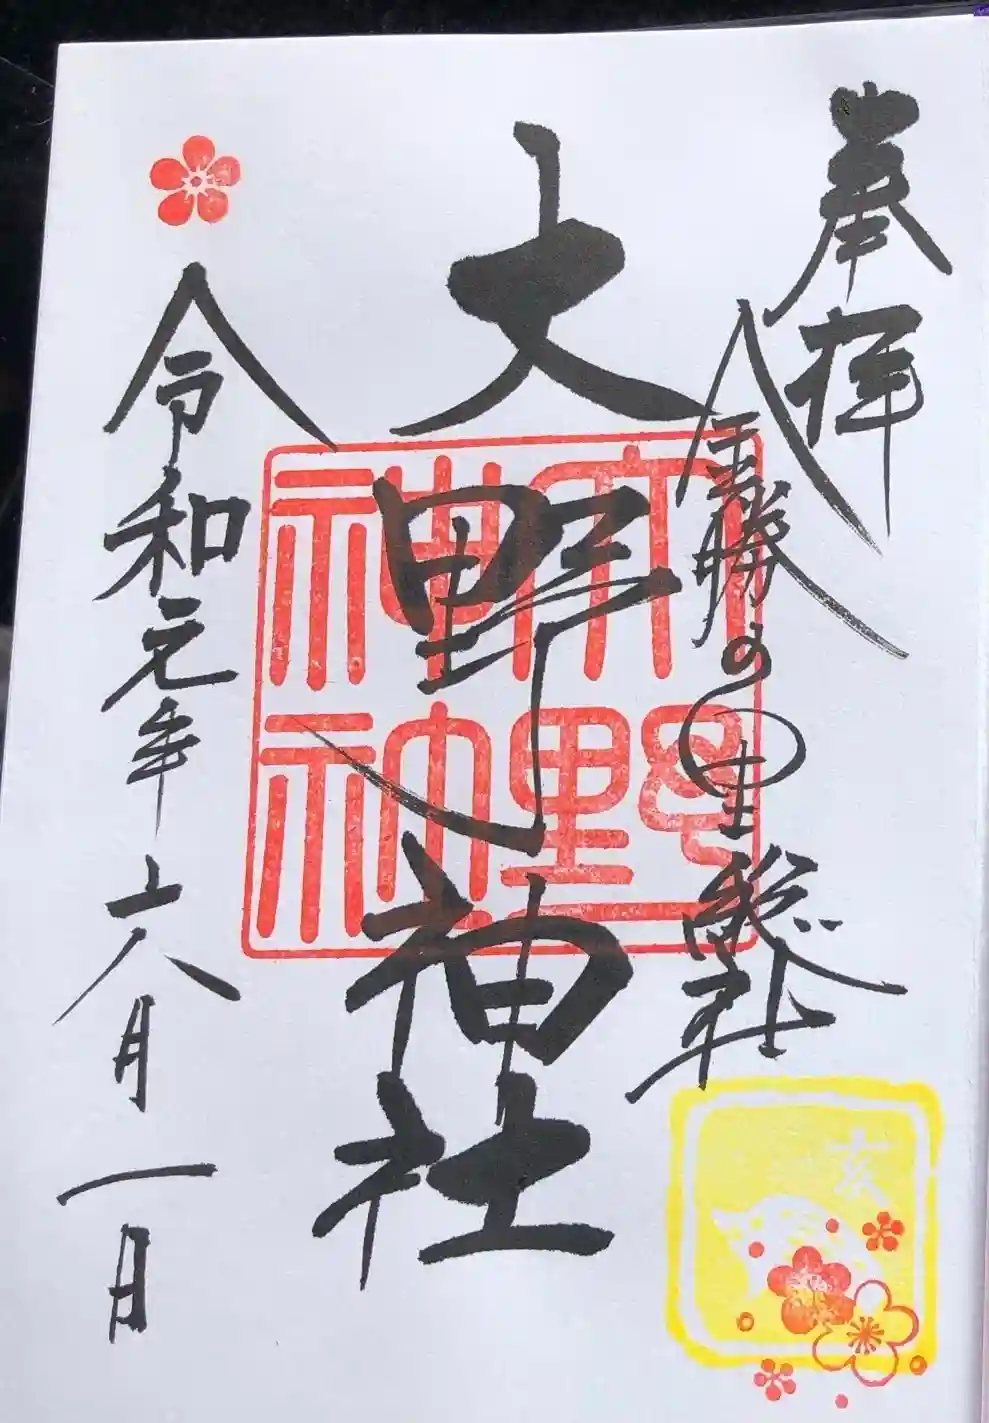 奉拝
金勝の里総社
大野神社
大野
神社
令和元年六月一日
亥